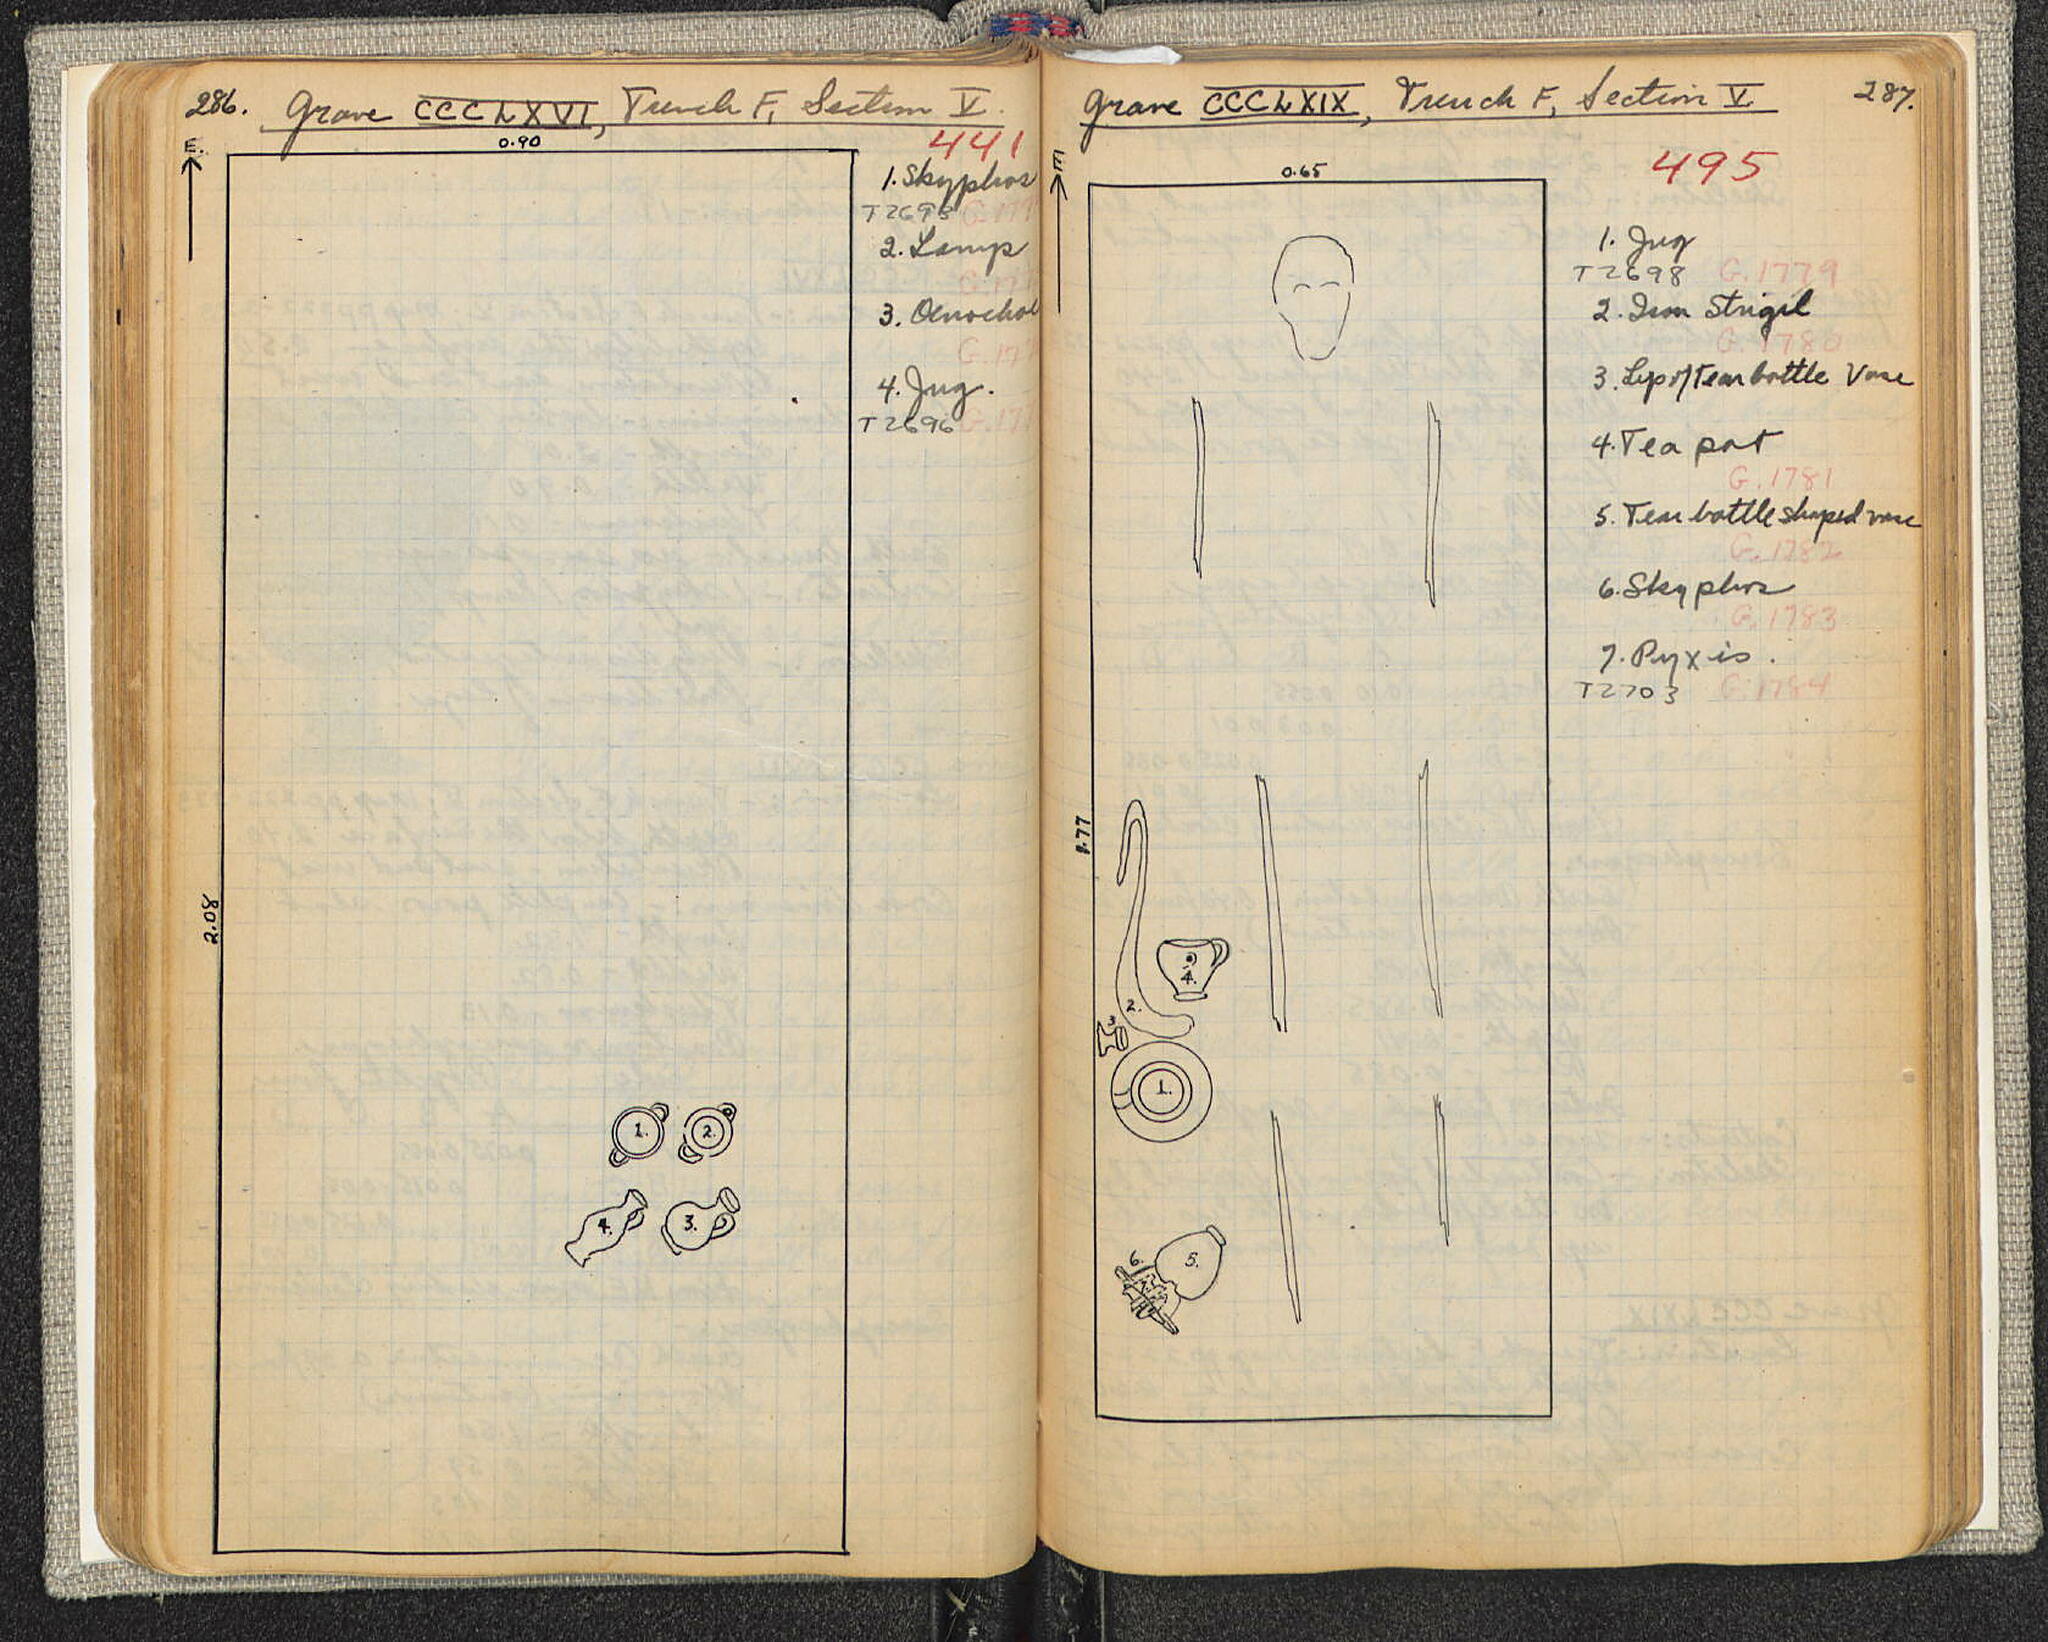 286. Grave CCCLXVI, Trench F, Section V.
441
E.
0.90
1. Skyphos
T2693
2. Lamp
3. Oenochoe
4. Jug.
T2696
2.08
1.
2.
4.
3.
Grave CCCLXIX, Trench F, Section V. 287.
495
E
0.65
1. Jug
T2698 G.1779
2. Iron Strigil
G.1780
3. Lip of Tear bottle Vase
4. Tea pot
G.1781
5. Tear bottle shaped vase
G.1782
6. Skyphos
G.1783
7. Pyxis.
T2703 G.1784
1.77
4.
2.
3
1.
6.
5.